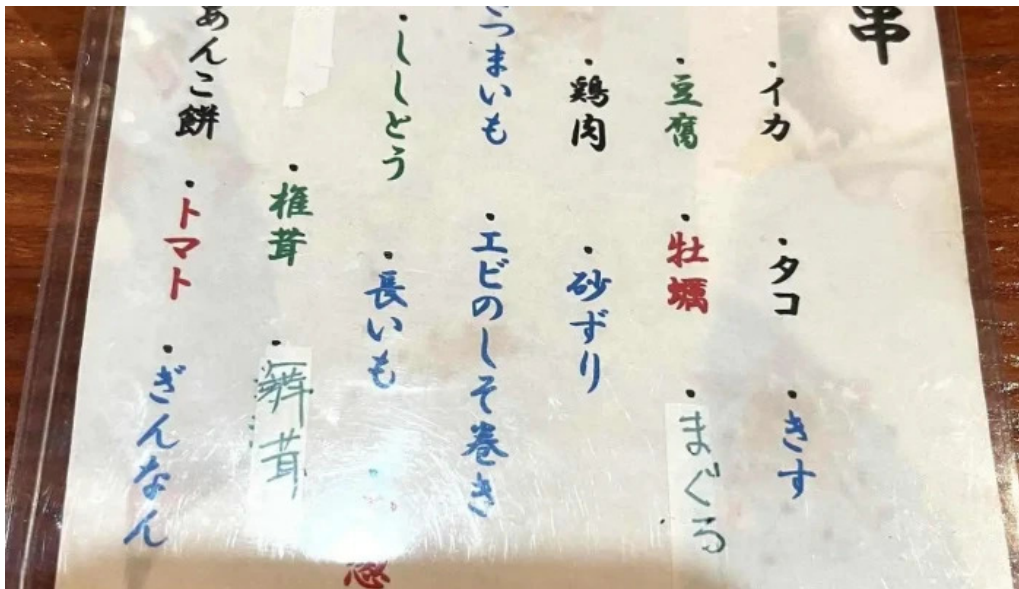 串
・イカ ・タコ ・きす
・豆腐 ・牡蠣 ・まぐろ
・鶏肉 ・砂ずり
つまいも ・エビのしそ巻き
・ししとう ・長いも
・椎茸 ・舞茸
あんこ餅 ・トマト ・ぎんなん